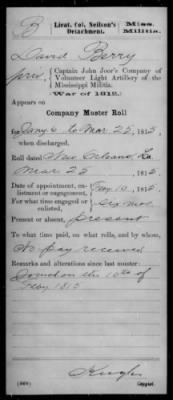 B
Lieut. Col. Neilson's Detachment.
Miss. Militia.
David Berry
Priv., Captain John Joor's Company of Volunteer Light Artillery of the Mississippi Militia.
War of 1812.
Appears on
Company Muster Roll
for Jany 6 to Mar 25, 1815,
when discharged.
Roll dated New Orleans, La
Mar 25, 1815.
Date of appointment, enlistment or engagement, Feby 10, 1815.
For what time engaged or enlisted, six mos.
Present or absent, present
To what time paid, on what rolls, and by whom,
No pay received
Remarks and alterations since last muster:
Joined on the 10th of
Feby 1815
(668)
Copyist.